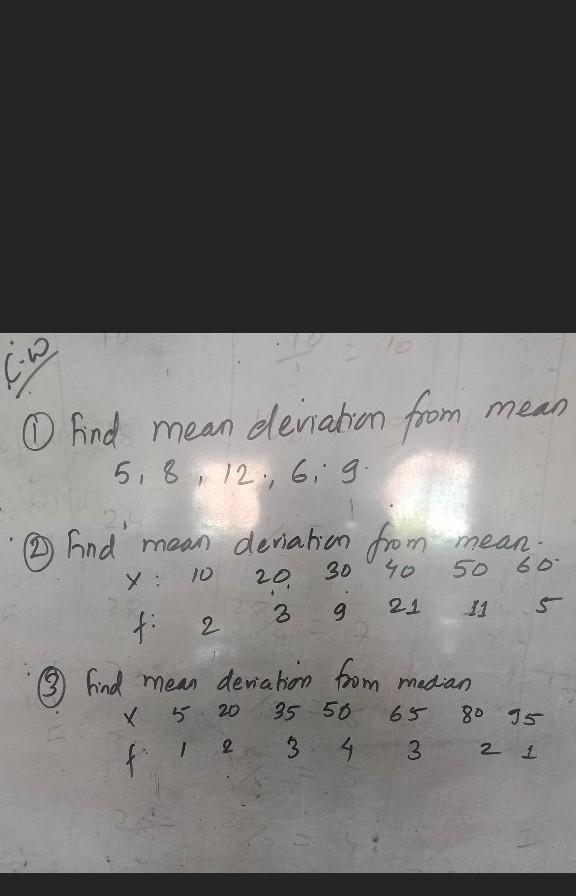 C.W
① find mean deviation from mean
5, 8, 12, 6, 9.
② find mean deviation from mean.
x: 10 20 30 40 50 60
f: 2 3 9 21 11 5
③ find mean deviation from median
x 5 20 35 50 65 80 95
f: 1 2 3 4 3 2 1